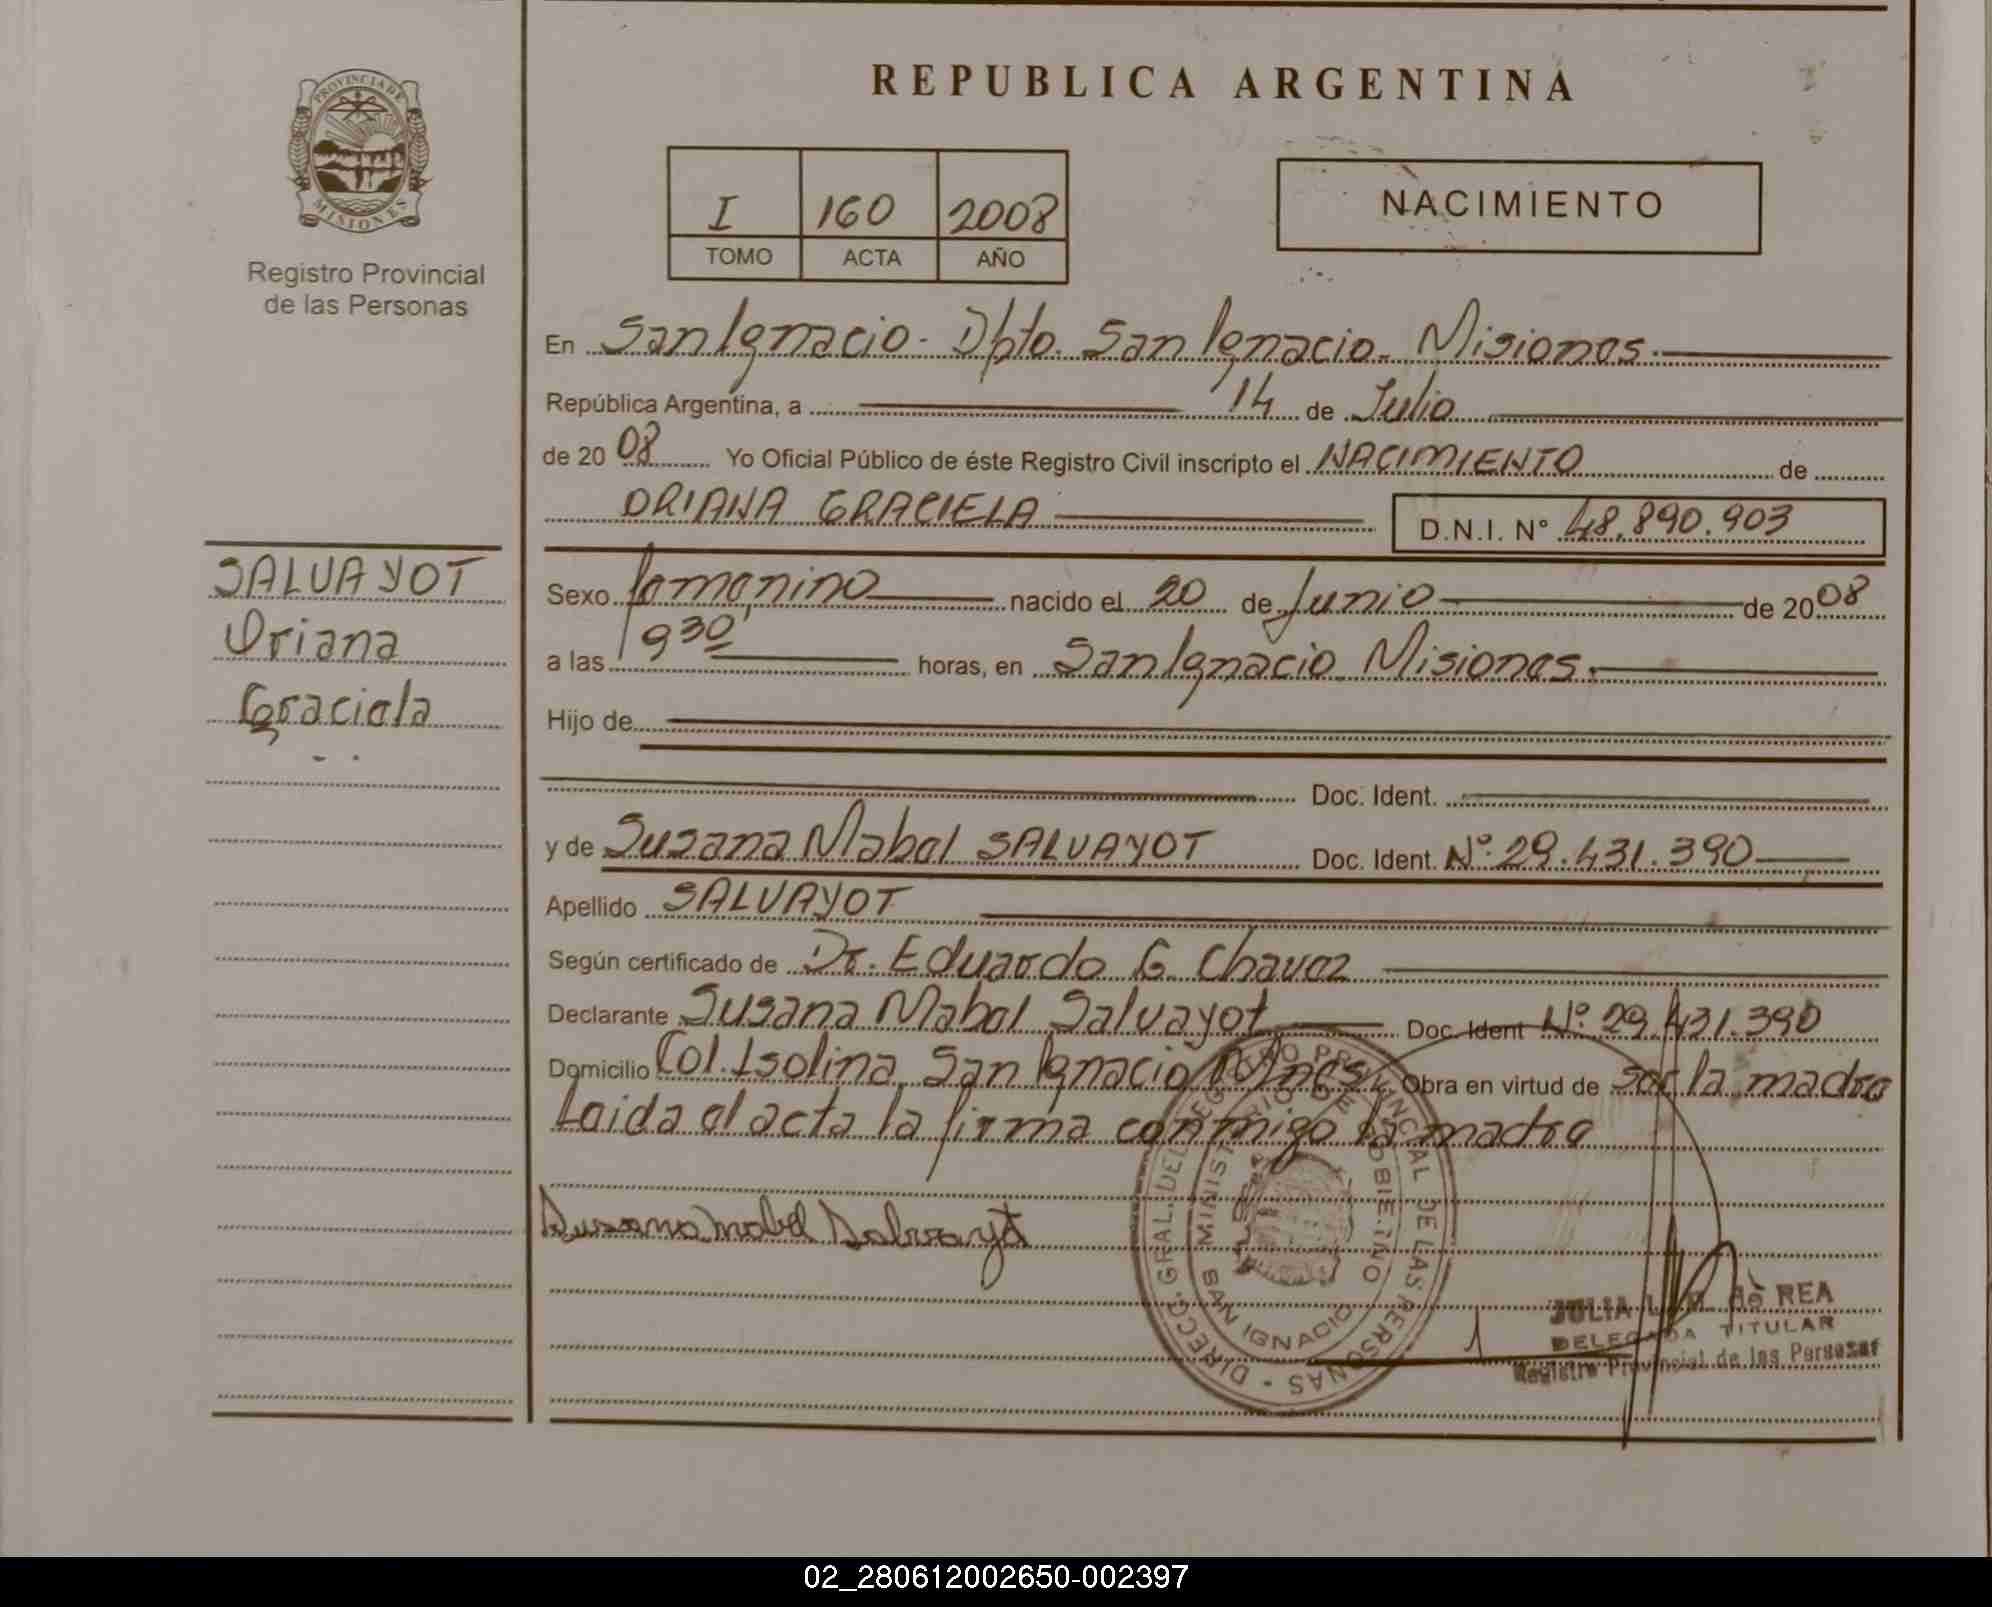 REPUBLICA ARGENTINA
PROVINCIA DE
MISIONES
Registro Provincial
de las Personas
I 160 2008
TOMO ACTA AÑO
NACIMIENTO
En San Ignacio - Dpto. San Ignacio. Misiones.
República Argentina, a 14 de Julio
de 2008 Yo Oficial Público de éste Registro Civil inscripto el NACIMIENTO de
ORIANA GRACIELA D.N.I. N° 48.890.903
SALVAYOT
Oriana
Graciela
Sexo femenino nacido el 20 de Junio de 2008
a las 930' horas, en San Ignacio Misiones.
Hijo de
Doc. Ident.
y de Susana Mabel SALVAYOT Doc. Ident. Nº 29.431.390
Apellido SALVAYOT
Según certificado de Dr. Eduardo G. Chavez
Declarante Susana Mabel Salvayot Doc. Ident Nº 29.431.390
Domicilio Col. Isolina, San Ignacio Obra en virtud de ser la madre
Leida el acta la firma conmigo la madre
Susana Mabel Salvayot
DIREC. GRAL. DEL REGISTRO PROVINCIAL DE LAS PERSONAS
MINISTERIO DE GOBIERNO
SAN IGNACIO
JULIA de REA
DELEGADA TITULAR
Registro Provincial de las Personas
02_280612002650-002397